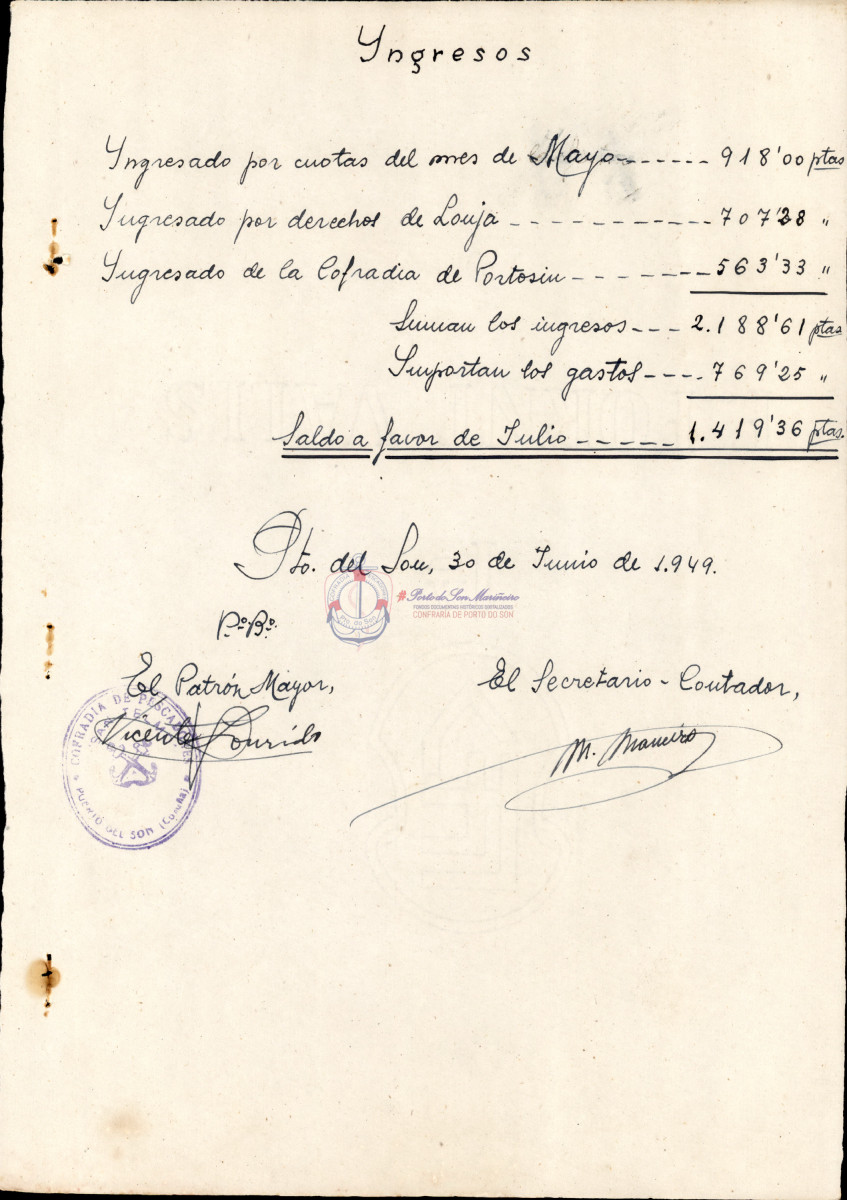 Yngresos
Yngresado por cuotas del mes de Mayo------- 918'00 ptas
Yngresado por derechos de Lonja ------------ 707'28 "
Yngresado de la Cofradia de Portosin-------- 563'33 "
Suman los ingresos--- 2.188'61 ptas
Importan los gastos---- 769'25 "
Saldo a favor de Julio ----- 1.419'36 ptas.
Pto. del Son, 30 de Junio de 1.949.
COFRADIA
Pto. do Son
#Porto do Son Mariñeiro
FONDOS DOCUMENTAIS HISTÓRICOS DIXITALIZADOS
CONFRARÍA DE PORTO DO SON
Vº Bº.
El Patrón Mayor,
El Secretario-Contador,
Vicente Lourido
M. Maneiro
COFRADIA DE PESCADORES
PUERTO DEL SON (Coruña)